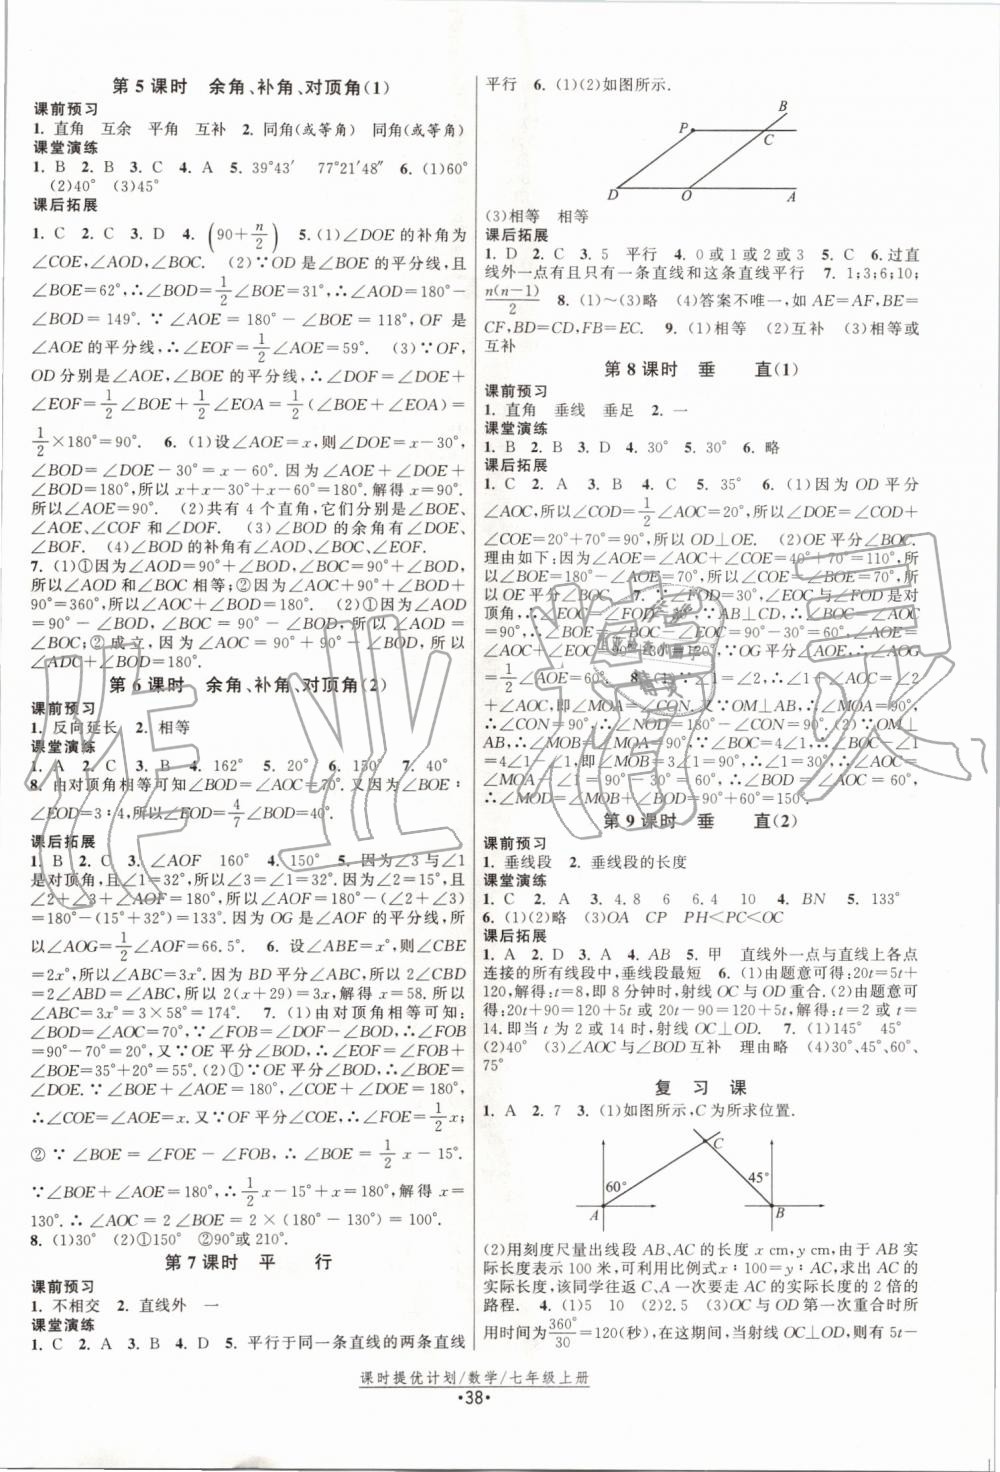 第5课时 余角、补角、对顶角(1)
课前预习
1. 直角 互余 平角 互补 2. 同角(或等角) 同角(或等角)
课堂演练
1. B 2. B 3. C 4. A 5. 39°43′ 77°21′48″ 6. (1)60°
(2)40° (3)45°
课后拓展
1. C 2. C 3. D 4. (90+n/2) 5. (1)∠DOE的补角为
∠COE,∠AOD,∠BOC. (2)∵OD是∠BOE的平分线,且
∠BOE=62°,∴∠BOD=1/2∠BOE=31°,∴∠AOD=180°-
∠BOD=149°. ∵∠AOE=180°-∠BOE=118°,OF是
∠AOE的平分线,∴∠EOF=1/2∠AOE=59°. (3)∵OF,
OD分别是∠AOE,∠BOE的平分线,∴∠DOF=∠DOE+
∠EOF=1/2∠BOE+1/2∠EOA=1/2(∠BOE+∠EOA)=
1/2×180°=90°. 6. (1)设∠AOE=x,则∠DOE=x-30°,
∠BOD=∠DOE-30°=x-60°. 因为∠AOE+∠DOE+
∠BOD=180°,所以x+x-30°+x-60°=180°. 解得x=90°.
所以∠AOE=90°. (2)共有4个直角,它们分别是∠BOE、
∠AOE、∠COF和∠DOF. (3)∠BOD的余角有∠DOE、
∠BOF. (4)∠BOD的补角有∠AOD、∠BOC、∠EOF.
7. (1)①因为∠AOD=90°+∠BOD,∠BOC=90°+∠BOD,
所以∠AOD和∠BOC相等;②因为∠AOC+90°+∠BOD+
90°=360°,所以∠AOC+∠BOD=180°. (2)①因为∠AOD
=90°-∠BOD,∠BOC=90°-∠BOD,所以∠AOD=
∠BOC;②成立,因为∠AOC=90°+90°-∠BOD,所以
∠AOC+∠BOD=180°.
第6课时 余角、补角、对顶角(2)
课前预习
1. 反向延长 2. 相等
课堂演练
1. A 2. C 3. B 4. 162° 5. 20° 6. 150° 7. 40°
8. 由对顶角相等可知∠BOD=∠AOC=70°. 又因为∠BOE:
∠EOD=3:4,所以∠EOD=4/7∠BOD=40°.
课后拓展
1. B 2. C 3. ∠AOF 160° 4. 150° 5. 因为∠3与∠1
是对顶角,且∠1=32°,所以∠3=∠1=32°. 因为∠2=15°,且
∠2+∠3+∠AOF=180°,所以∠AOF=180°-(∠2+∠3)
=180°-(15°+32°)=133°. 因为OG是∠AOF的平分线,所
以∠AOG=1/2∠AOF=66.5°. 6. 设∠ABE=x°,则∠CBE
=2x°,所以∠ABC=3x°. 因为BD平分∠ABC,所以2∠CBD
=∠ABC=3x°,所以2(x+29)=3x,解得x=58. 所以
∠ABC=3x°=3×58°=174°. 7. (1)由对顶角相等可知:
∠BOD=∠AOC=70°,∵∠FOB=∠DOF-∠BOD,∴∠FOB
=90°-70°=20°,又∵OE平分∠BOD,∴∠EOF=∠FOB+
∠BOE=35°+20°=55°. (2)①∵OE平分∠BOD,∴∠BOE=
∠DOE. ∵∠BOE+∠AOE=180°,∠COE+∠DOE=180°,
∴∠COE=∠AOE=x. 又∵OF平分∠COE,∴∠FOE=1/2x;
②∵∠BOE=∠FOE-∠FOB,∴∠BOE=1/2x-15°.
∵∠BOE+∠AOE=180°,∴1/2x-15°+x=180°,解得x=
130°. ∴∠AOC=2∠BOE=2×(180°-130°)=100°.
8. (1)30° (2)①150° ②90°或210°.
第7课时 平 行
课前预习
1. 不相交 2. 直线外 一
课堂演练
1. C 2. A 3. B 4. D 5. 平行于同一条直线的两条直线
平行 6. (1)(2)如图所示.
P
B
C
D
O
A
(3)相等 相等
课后拓展
1. D 2. C 3. 5 平行 4. 0或1或2或3 5. C 6. 过直
线外一点有且只有一条直线和这条直线平行 7. 1;3;6;10;
n(n-1)/2 8. (1)~(3)略 (4)答案不唯一,如AE=AF,BE=
CF,BD=CD,FB=EC. 9. (1)相等 (2)互补 (3)相等或
互补
第8课时 垂 直(1)
课前预习
1. 直角 垂线 垂足 2. 一
课堂演练
1. B 2. B 3. D 4. 30° 5. 30° 6. 略
课后拓展
1. C 2. A 3. B 4. C 5. 35° 6. (1)因为OD平分
∠AOC,所以∠COD=1/2∠AOC=20°,所以∠DOE=∠COD+
∠COE=20°+70°=90°,所以OD⊥OE. (2)OE平分∠BOC.
理由如下:因为∠AOE=∠AOC+∠COE=40°+70°=110°,所
以∠BOE=180°-∠AOE=70°,所以∠COE=∠BOE=70°,所
以OE平分∠BOC. 7. ∵∠FOD=30°,∠EOC与∠FOD是对
顶角,∴∠EOC=∠FOD=30°. ∵AB⊥CD,∴∠BOC=∠AOC
=90°,∴∠BOE=∠BOC-∠EOC=90°-30°=60°. ∴∠AOE=
∠AOC+∠EOC=90°+30°=120°. ∵OG平分∠AOE,
∴∠AOG=1/2∠AOE=60°. 8. (1)∵∠1=∠2,∴∠1+∠AOC=∠2
+∠AOC,即∠MOA=∠CON. 又∵OM⊥AB,∴∠MOA=90°,
∴∠CON=90°,∴∠NOD=180°-∠CON=90°. (2)∵OM⊥
AB,∴∠MOB=∠MOA=90°,∵∠BOC=4∠1,∴∠BOC-∠1
=4∠1-∠1,即∠MOB=3∠1=90°,∴∠1=30°,∴∠AOC=
∠MOA-∠1=90°-30°=60°. 又∵∠BOD=∠AOC=60°,
∴∠MOD=∠MOB+∠BOD=90°+60°=150°.
第9课时 垂 直(2)
课前预习
1. 垂线段 2. 垂线段的长度
课堂演练
1. C 2. A 3. 4.8 6 6.4 10 4. BN 5. 133°
6. (1)(2)略 (3)OA CP PH<PC<OC
课后拓展
1. A 2. D 3. A 4. AB 5. 甲 直线外一点与直线上各点
连接的所有线段中,垂线段最短 6. (1)由题意可得:20t=5t+
120,解得:t=8,即8分钟时,射线OC与OD重合. (2)由题意可
得:20t+90=120+5t或20t-90=120+5t,解得:t=2或t=
14. 即当t为2或14时,射线OC⊥OD. 7. (1)145° 45°
(2)40° (3)∠AOC与∠BOD互补 理由略 (4)30°、45°、60°、
75°
复 习 课
1. A 2. 7 3. (1)如图所示,C为所求位置.
C
60°
45°
A
B
(2)用刻度尺量出线段AB、AC的长度x cm,y cm,由于AB
实际长度表示100米,可利用比例式x:100=y:AC,求出AC的
实际长度,该同学往返C、A一次要走AC的实际长度的2倍的
路程. 4. (1)5 10 (2)2.5 (3)OC与OD第一次重合时所
用时间为360°/30=120(秒),在此期间,当射线OC⊥OD,则有5-
课时提优计划/数学/七年级上册
·38·
作业精灵